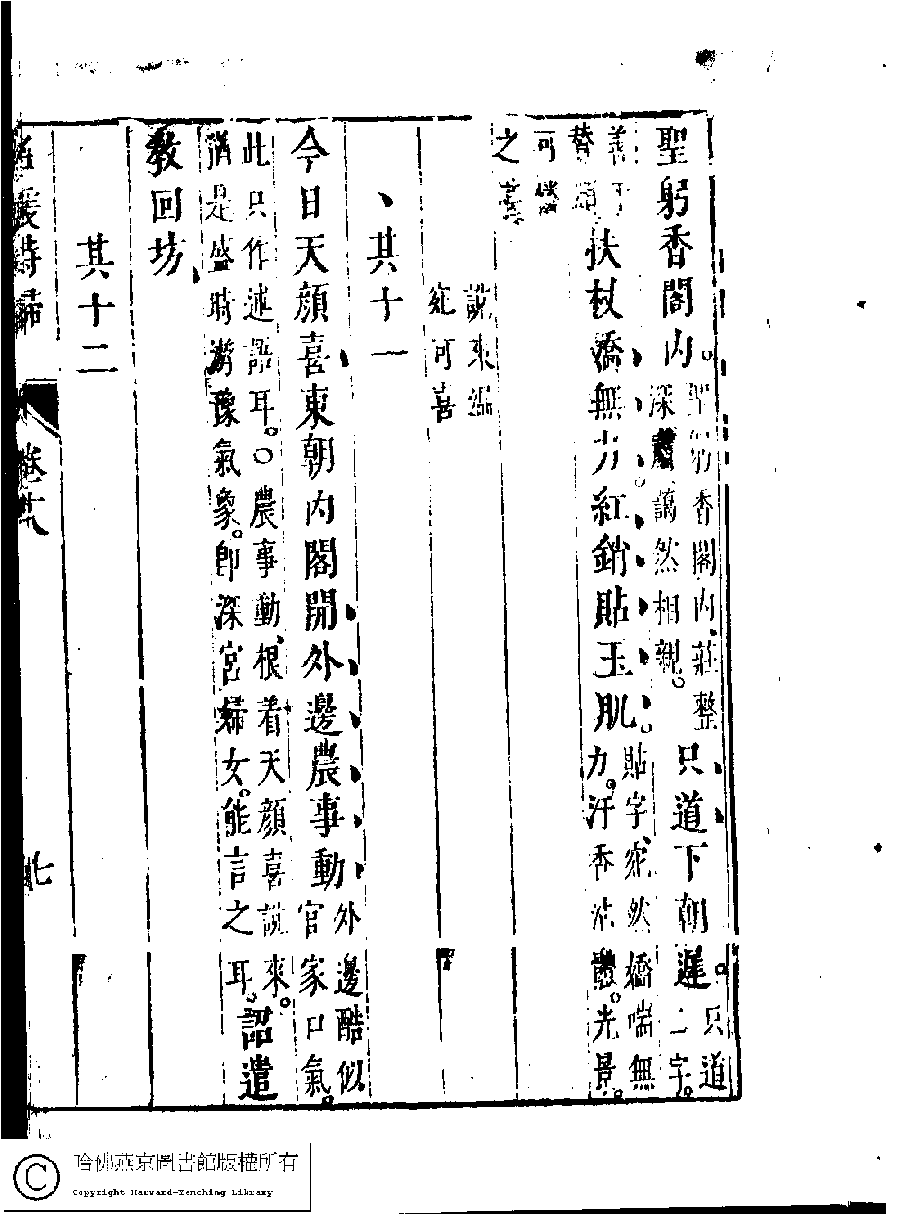 聖躬香閣內。聖躬香閣內、莊整深肅、藹然相親。只道下朝遲。只道二字。
善于替扶杖嬌無力紅銷貼玉肌。貼字、宛然嬌喘無力。汗香沾體。光景。
可憐之
其十一 說來宛可喜
今日天顏喜東朝內閣開外邊農事動外邊酷似官家口氣。
此只作述語耳。○農事動、根着天顏喜說來。猶是盛時游豫氣象。即深宮婦女。能言之耳。詔遣
教回坊
其十二
名媛詩歸 卷十八 七
哈佛燕京圖書館版權所有
Copyright Harvard-Yenching Library